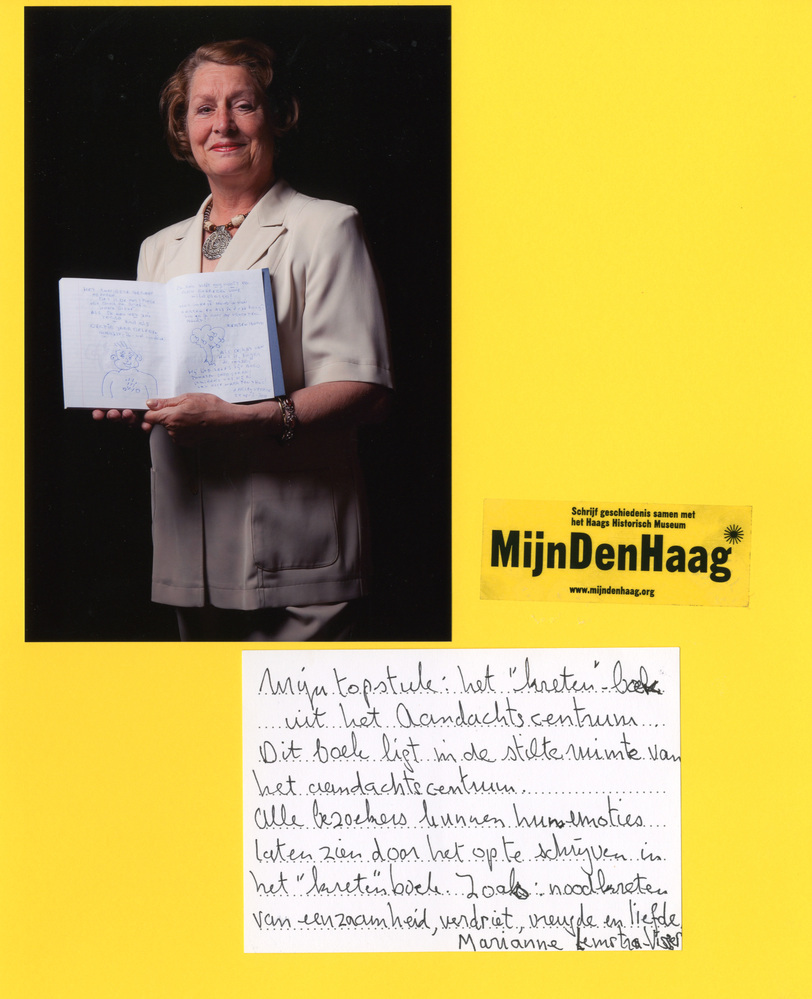 Schrijf geschiedenis samen met
het Haags Historisch Museum
MijnDenHaag
www.mijndenhaag.org
Mijn topstuk: het "kreten"-boek
uit het Aandachtscentrum
Dit boek ligt in de stilte ruimte van
het aandachtscentrum.
Alle bezoekers kunnen hun emoties
laten zien door het op te schrijven in
het "kreten" boek Zoals: noodkreten
van eenzaamheid, verdriet, vreugde en liefde
Marianne Lemstra-Visser